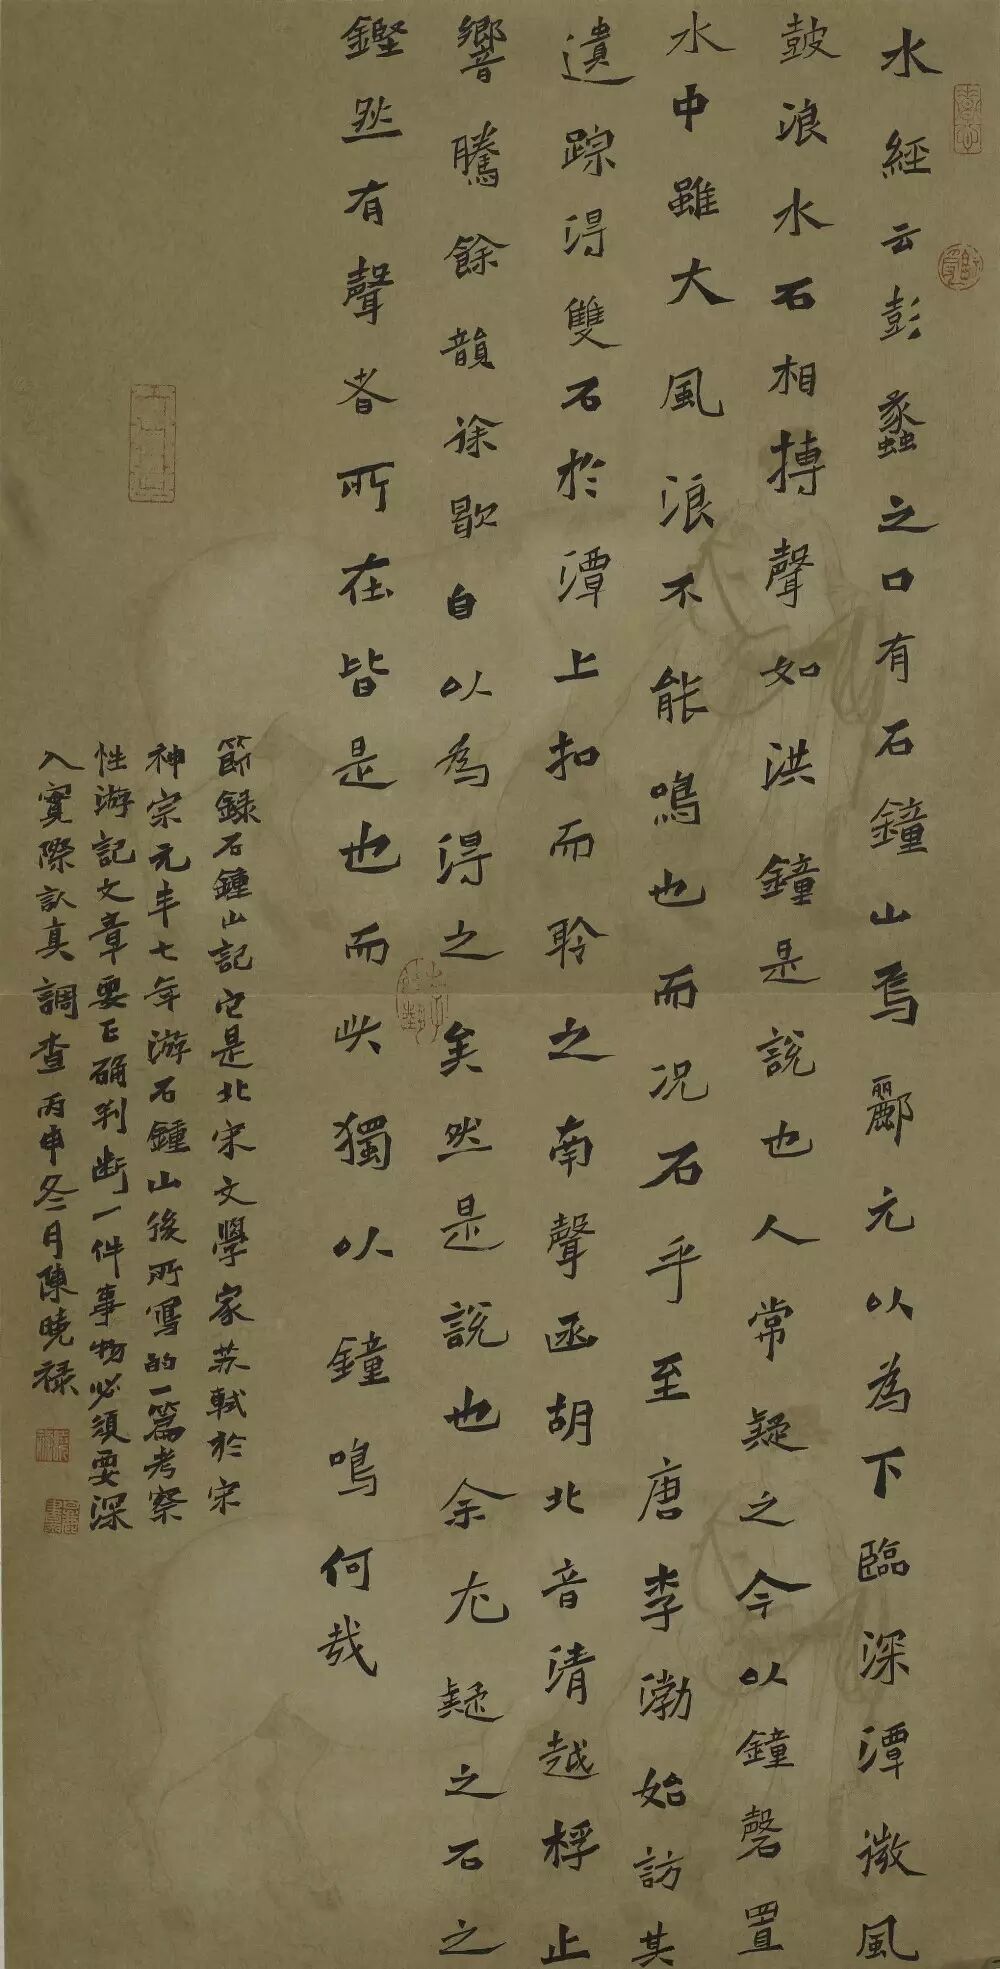 水經云彭蠡之口有石鐘山焉酈元以為下臨深潭微風
鼓浪水石相搏聲如洪鐘是說也人常疑之今以鐘磬置
水中雖大風浪不能鳴也而况石乎至唐李渤始訪其
遺踪得雙石於潭上扣而聆之南聲函胡北音清越桴止
響騰餘韻徐歇自以為得之矣然是說也余尤疑之石之
鏗然有聲者所在皆是也而此獨以鐘鳴何哉
節録石鍾山記它是北宋文學家苏軾於宋
神宗元丰七年游石鍾山後所寫的一篇考察
性游記文章要正确判断一件事物必須要深
入實際认真調查丙申冬月陳曉禄